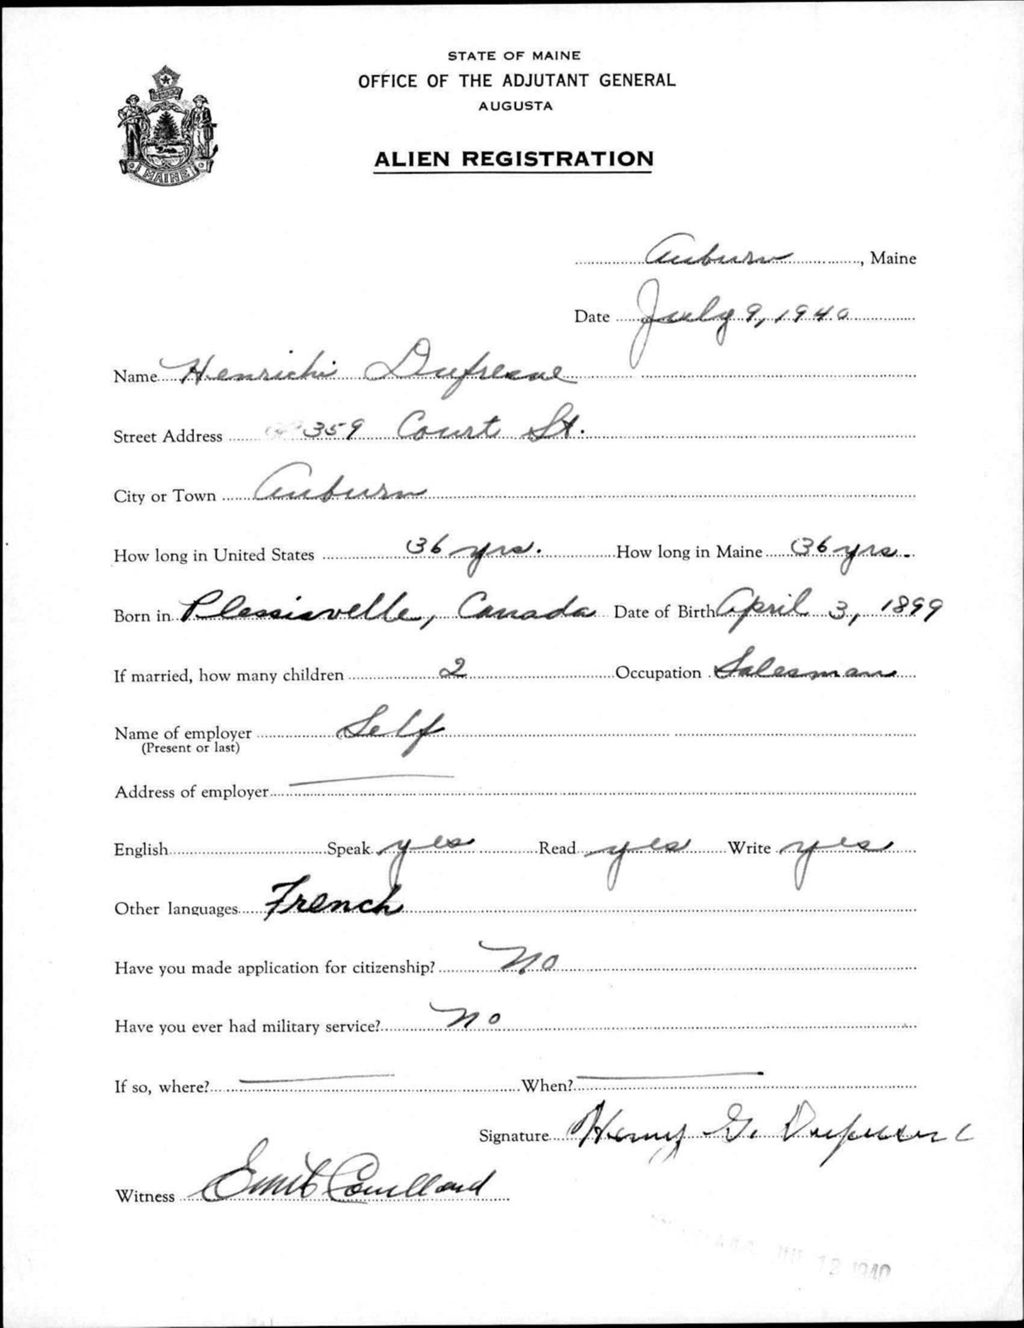 STATE OF MAINE
OFFICE OF THE ADJUTANT GENERAL
AUGUSTA
ALIEN REGISTRATION
MAINE
Auburn, Maine
Date July 9, 1940
Name Henrichi Dufresne
Street Address 359 Court St.
City or Town Auburn
How long in United States 36 yrs. How long in Maine 36 yrs.
Born in Plessisville, Canada Date of Birth April 3, 1899
If married, how many children 2 Occupation Salesman
Name of employer Self
(Present or last)
Address of employer
English Speak yes Read yes Write yes
Other languages French
Have you made application for citizenship? No
Have you ever had military service? No
If so, where? When?
Signature Henry G. Dufresne
Witness Couillard
12 1940